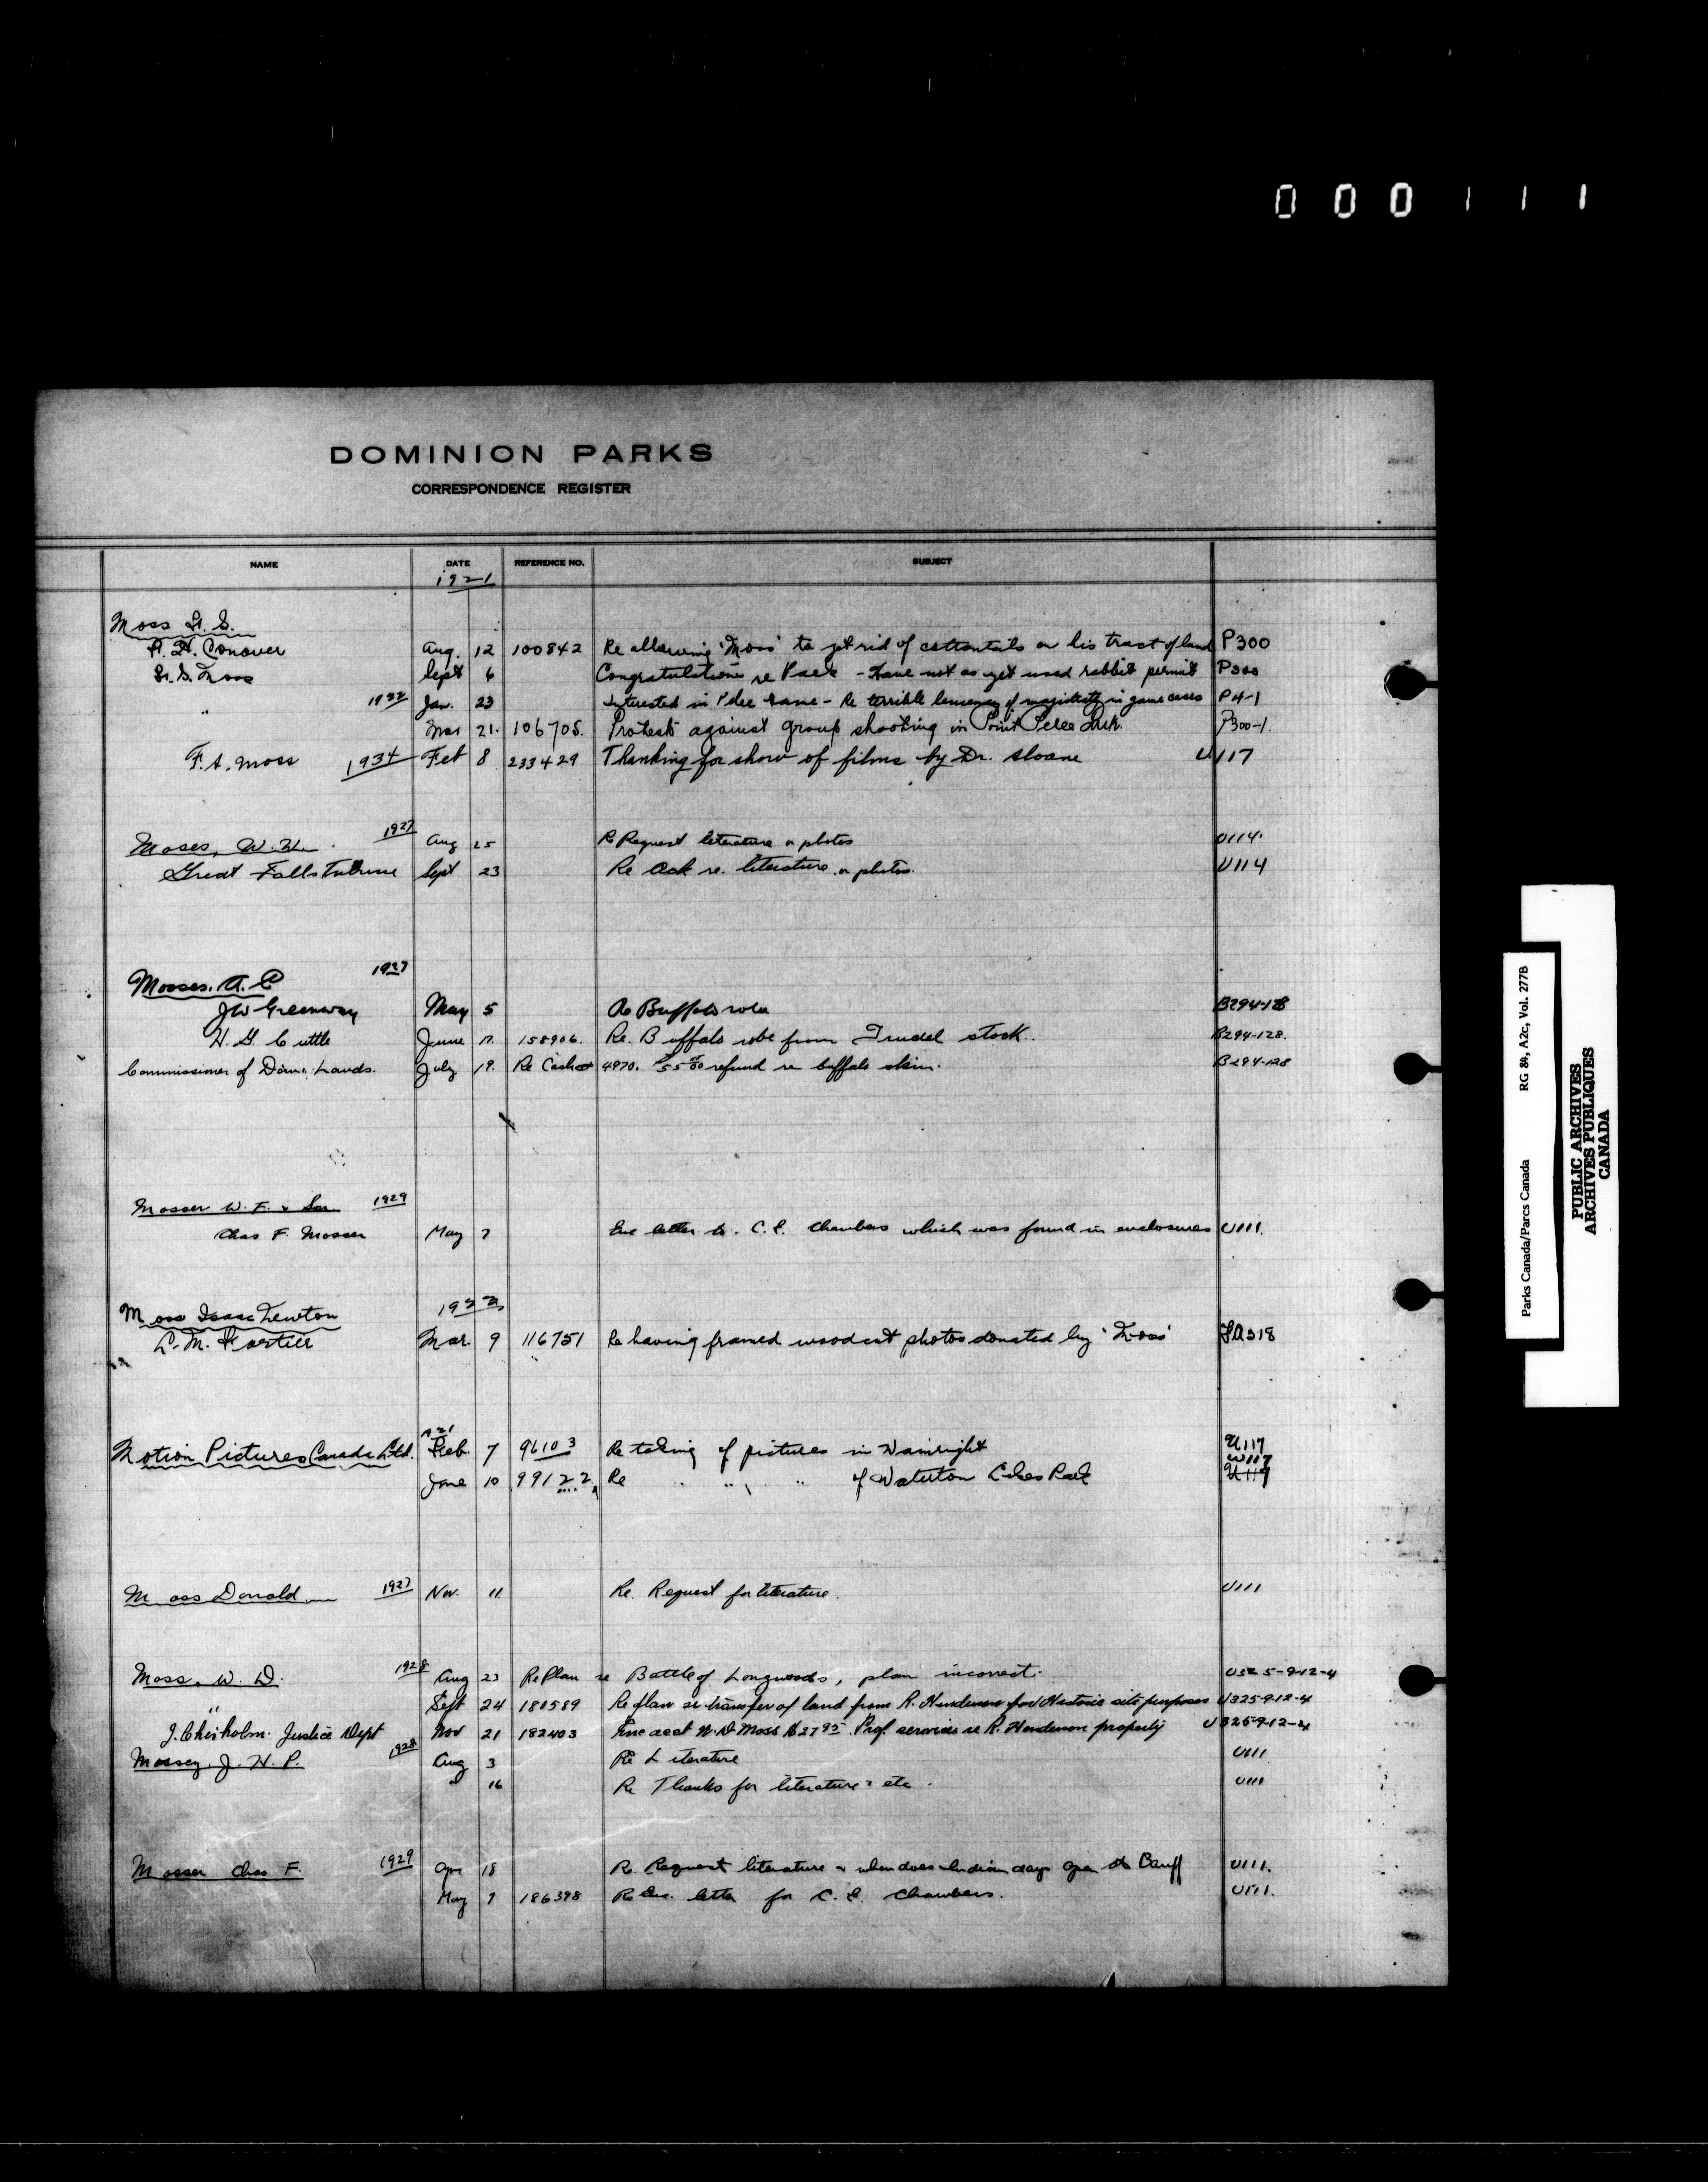 000111
DOMINION PARKS
CORRESPONDENCE REGISTER
NAME DATE REFERENCE NO. SUBJECT
1921
Moss
Conover Aug. 12 100842 Re allowing 'Moss' to get rid of cottontails on his tract of land P300
Moss Sept 6 Congratulations re Park - Have not as yet used rabbit permit P300
" 1922 Jan. 23 Interested in Pelee Game - Re terrible leniency of magistrate in game cases P4-1
Mar 21. 106705. Protests against group shooting in Point Pelee Park. P300-1.
F.A. Moss 1934 Feb 8 233429 Thanking for show of films by Dr. Sloane U117
Moses, W. H. 1927 Aug 25 Re Request literature & photos U114.
Great Falls Tribune Sept 23 Re Ack re. literature & photos. U114
Mosses. A. C 1927
JW Greenway May 5 Re Buffalo robe B294-128
H. G. Cuttle June 17. 158906. Re. Buffalo robe from Trudel stock. B294-128.
Commissioner of Dom. Lands. July 19. Re Cash 4970. $55.00 refund re buffalo skin. B294-128
Mosser W. F. & Son 1929
Chas F. Mosser May 7 Enc letter to. C. E. Chambers which was found in enclosures U111.
Moss Isaac Newton 1922
C. M. Fortier Mar. 9 116751 Re having framed woodcut photos donated by 'Moss' FA318
Motion Pictures Canada Ltd. 1921 Feb. 7 96103 Re taking of pictures in Wainright U117
W117
June 10 99122 Re " " " of Waterton Lakes Park U117
Moss Donald 1927 Nov. 11. Re. Request for literature. U111
Moss, W. D. 1928 Aug 23 Re Plan re Battle of Longwoods, plan incorrect. U325-9-12-4
" Sept 24 180589 Re plan re transfer of land from R. Henderson for Historic site purposes U325-9-12-4
J. Chisholm. Justice Dept Nov 21 182403 Enc acct W. D Moss $27.95 Prof. services re R. Henderson property U325-9-12-4
Mossey, J. H. P. 1928 Aug 3 Re Literature U111
" 16 Re Thanks for literature etc. U111
Mosser Chas F. 1929 Apr 18 Re. Request literature & when does Indian days open at Banff U111.
May 7 186398 Re Enc. letter for C. E. Chambers. U111.
Parks Canada/Parcs Canada RG 84, A2c, Vol. 277B
PUBLIC ARCHIVES
ARCHIVES PUBLIQUES
CANADA